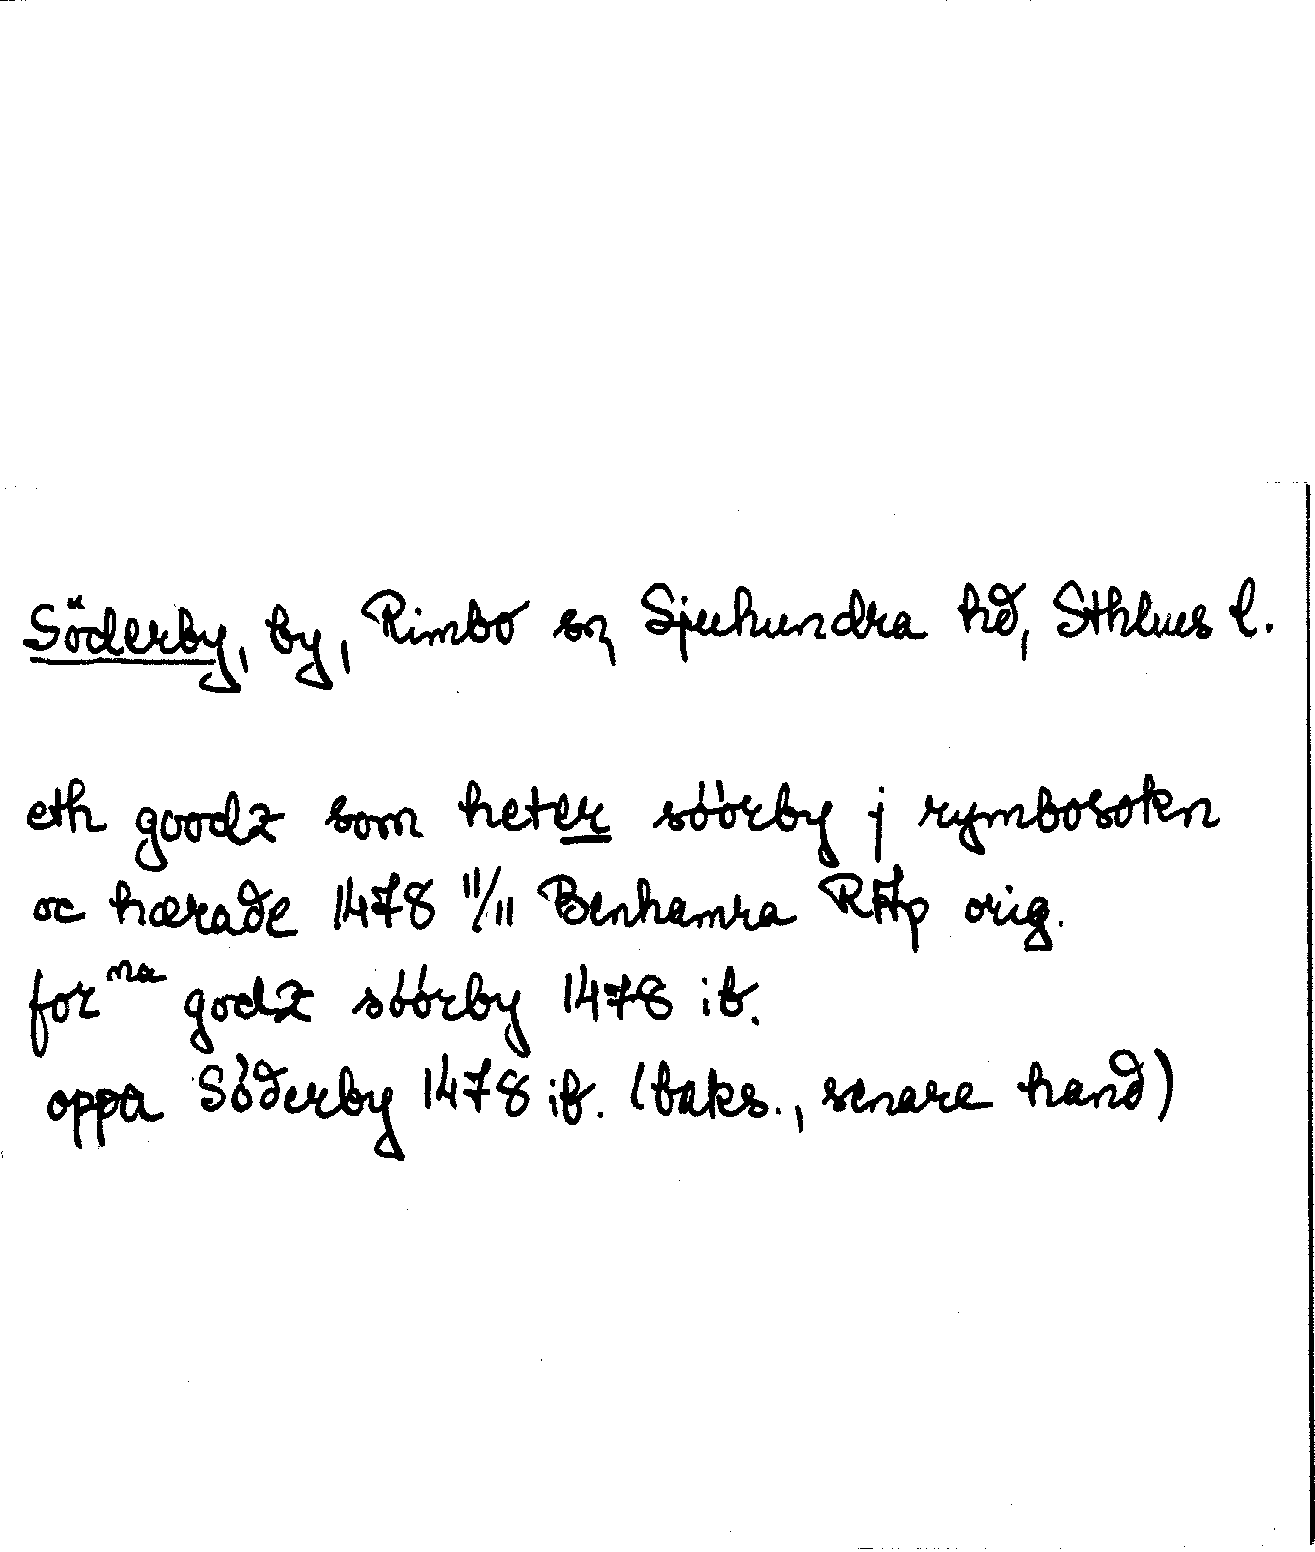 Söderby, by, Rimbo sn, Sjuhundra hd, Sthlms l.
eth goodz som heter sóórby j rymbosokn
oc hærade 1478 11/11 Benhamra RAp orig.
for na godz sóórby 1478 ib.
oppa Sóderby 1478 ib. (baks., senare hand)